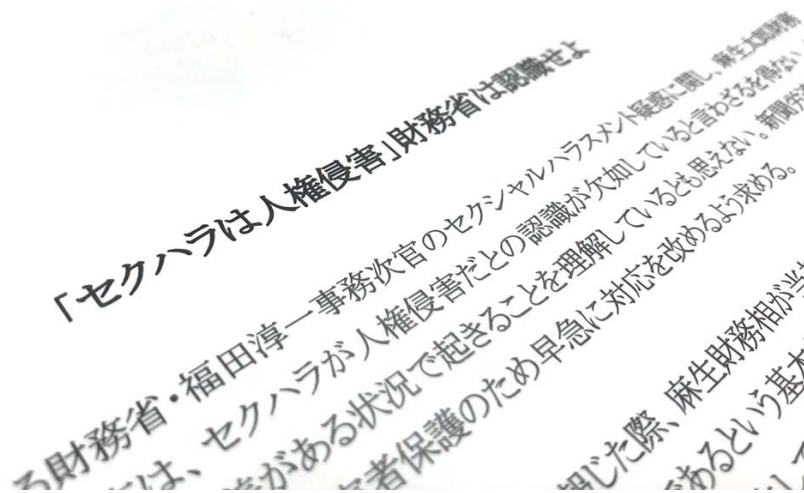 「セクハラは人権侵害」財務省は認識せよ
る財務省・福田淳一事務次官のセクシャルハラスメント疑惑に関し、麻生太郎財務
は、セクハラが人権侵害だとの認識が欠如していると言わざるを得ない。
がある状況で起きることを理解しているとも思えない。新聞労
者保護のため早急に対応を改めるよう求める。
報じた際、麻生財務相が当
であるという基本